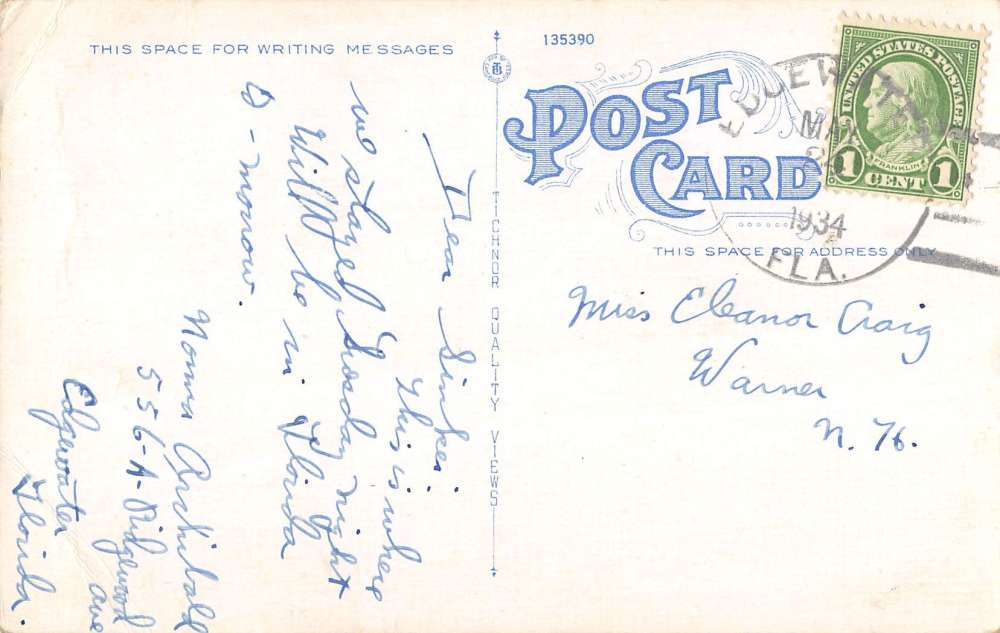 THIS SPACE FOR WRITING MESSAGES
135390
POST
CARD
THIS SPACE FOR ADDRESS ONLY
TICHNOR QUALITY VIEWS
UNITED STATES POSTAGE
FRANKLIN
1 CENT 1
MAY
1934
FLA.
Dear Sinkei:
This is where
we stayed Sunday night
Will be in Florida
to-morrow.
Norma Archibald
556-A-Ridgewood
ave
Edgewater
Florida.
Miss Eleanor Craig
Warner
N. H.